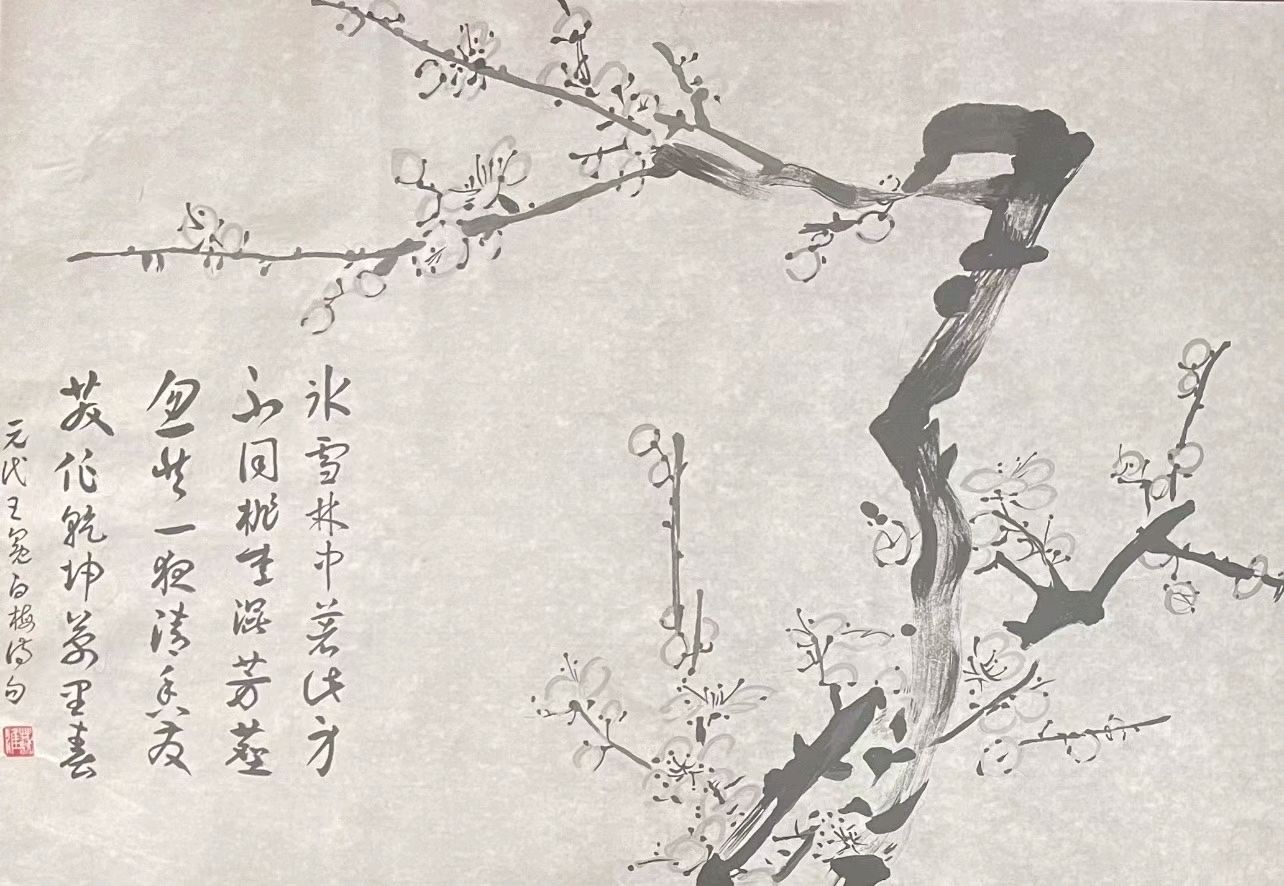 冰雪林中著此身
不同桃李混芳塵
忽然一夜清香发
散作乾坤萬里春
元代王冕白梅诗句